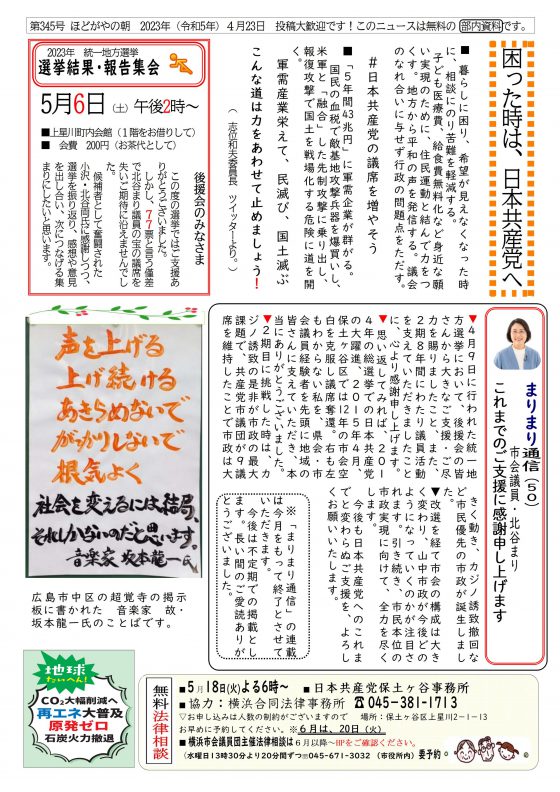 第345号 ほどがやの朝 2023年（令和5年）４月23日 投稿大歓迎です！このニュースは無料の 部内資料 です。
2023年 統一地方選挙
選挙結果・報告集会
5月6日（土）午後2時〜
■上星川町内会館（１階をお借りして）
■ 会費 200円（お茶代として）
後援会のみなさま
この度の選挙ではご支援あ
りがとうございました。
しかし、７７票と言う僅差
で北谷まり議員の宝の議席を
失いご期待に沿えませんでし
た。
候補者として奮闘された
小沢・北谷両氏に感謝しつつ、
選挙を振り返り、感想や意見
を出し合い、次につなげる集
まりにしたいと思います。
困った時は、日本共産党へ
■ 暮らしに困り、希望が見えなくなった時
に、相談にのり苦難を軽減する。
子ども医療費、給食費無料化など身近な願
い実現のために、住民運動と結んで力をつ
くす。地方から平和の声を発信する。議会
のなれ合いに与せず行政の問題点をただす。
＃日本共産党の議席を増やそう
■「５年間43兆円」に軍需企業が群がる。
国民の血税で敵基地攻撃兵器を爆買いし、
米軍と「融合」した先制攻撃に乗り出し、
報復攻撃で国土を戦場化する危険に道を開く。
軍需産業栄えて、民滅び、国土滅ぶ
こんな道は力をあわせて止めましょう！
（ 志位和夫委員長 ツイッターより。）
まりまり通信（５０）
市会議員・北谷まり
これまでのご支援に感謝申し上げます
▼４月９日に行われた統一地
方選挙において、後援会の皆
さんから大きなご支援・ご尽
力を賜りましたこと、また、
２期８年間にわたり議員活動
を支えていただきましたこと
に、心より感謝申し上げます。
▼思い返してみれば、２０１
４年の総選挙での日本共産党
の大躍進、２０１５年４月、
保土ヶ谷区では12年の市会空
白を克服し議席奪還。右も左
もわからない私を、県会・市
会議員経験者を先頭に地域の
皆さんに支えていただき、本
当にありがとうございました。
▼２期目に挑戦した時は、カ
ジノ誘致の是非が市政の最大
課題で、共産党市議団が９議
席を維持したことで市政は大
きく動き、カジノ誘致撤回な
ど市民優先の市政が誕生しま
した。
▼改選を経て市会の構成は大き
く変わり、山中市政が今後どの
ようになっていくのかが注目さ
れます。引き続き、市民本位の
市政実現に向けて、全力を尽く
します。
今後も日本共産党へのこれま
でと変わらぬご支援を、よろし
くお願いいたします。
※「まりまり通信」の連載
は今月をもって終了とさせて
いただきます。
今後は不定期での掲載とし
ます。長い間のご愛読ありが
とうございました。
声を上げる
上げ続ける
あきらめないで
がっかりしないで
根気よく
社会を変えるには結局、
それしかないのだと思います。
音楽家 坂本龍一氏
広島市中区の超覚寺の掲示
板に書かれた 音楽家 故・
坂本龍一氏のことばです。
地球
たいへん！
CO₂大幅削減へ
再エネ大普及
原発ゼロ
石炭火力撤退
無料法律相談
■５月18日(火)よる6時〜 ■日本共産党保土ヶ谷事務所
■協力：横浜合同法律事務所 ☎045-381-1713
▽お申し込みは人数の制約がございますので 場所：保土ヶ谷区上星川2−1−13
お早めに予約してください。※６月は、20日（火）
■横浜市会議員団主催法律相談は６月以降〜HPをご確認ください。
（水曜日13時30分より20分間ずつ☏045-671-3032 （市役所内）要予約。